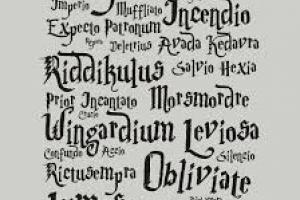 Imperio Muffliato Incendio
Expecto Patronum
Deletrius Avada Kedavra
Riddikulus Salvio Hexia
Prior Incantato Morsmordre
Crucio
Wingardium Leviosa
Confundo Accio Silencio
Rictusempra Obliviate